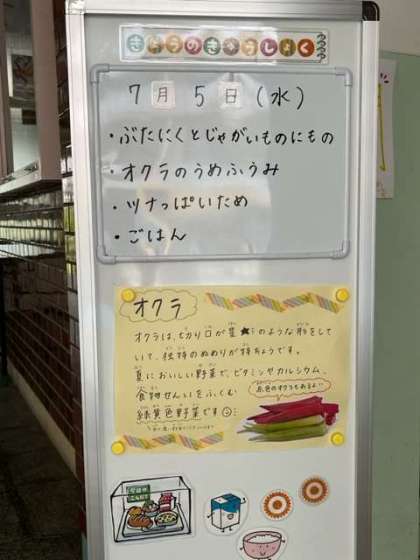 きょうのきゅうしょく
7月5日(水)
・ぶたにくとじゃがいものにもの
・オクラのうめふうみ
・ツナっぱいため
・ごはん
オクラ
オクラは、切り口が星★のような形をして
いて、独特のぬめりが特ちょうです。
夏においしい野菜で、ビタミンやカルシウム、
食物せんいをふくむ
赤色のオクラもあるよ!
緑黄色野菜です